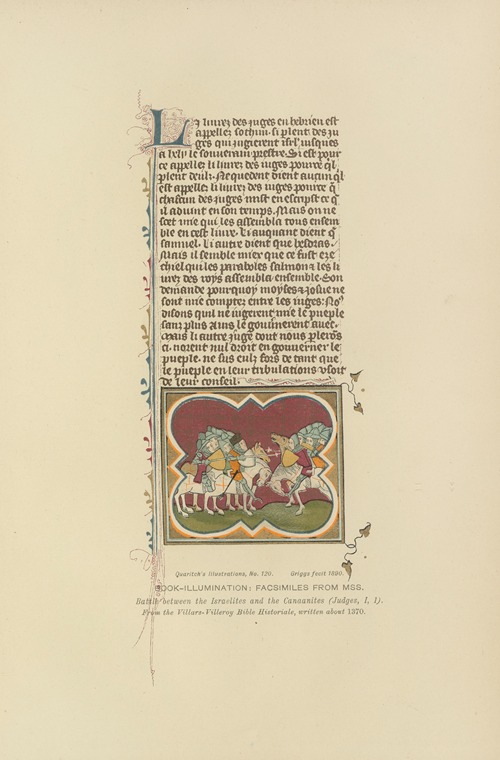 Li livrez des juges en hebrieu est
appellez sothim. si plent. des ju
ges qui jugierent isrl jusques
a hely le souverain prestre. Si est pour
ce appellez li livrez des juges pource q̄l
plent deulz. Ne quedent dient aucun q̄l
est appellez li livrez des juges pource q̄
chascun des juges mist en escript ce q̄
il advint en son temps. Mais on ne
scet mie qui les assembla tous ensem
ble en cest livre. Li auquant dient q̄
samuel. Li autre dient que hesdras.
Mais il semble miex que ce fust eze
chiel qui les paraboles salmon et les li
vrez des roys assembla ensemble. Son
demande pourquoy moyses et josue ne
sont mie comptez entre les juges: No9
disons quil ne jugerent mie le pueple
sanz plus
Mais li autre juge dont nous plerōs
ci. norent nul droit en gouverner le
pueple. ne sus eulz fors de tant que
le pueple en leur tribulations usoit
de leur conseil.
Quaritch's Illustrations, No. 120. Griggs fecit 1890.
BOOK-ILLUMINATION: FACSIMILES FROM MSS.
Battle between the Israelites and the Canaanites (Judges, I, 1).
From the Villars-Villeroy Bible Historiale, written about 1370.